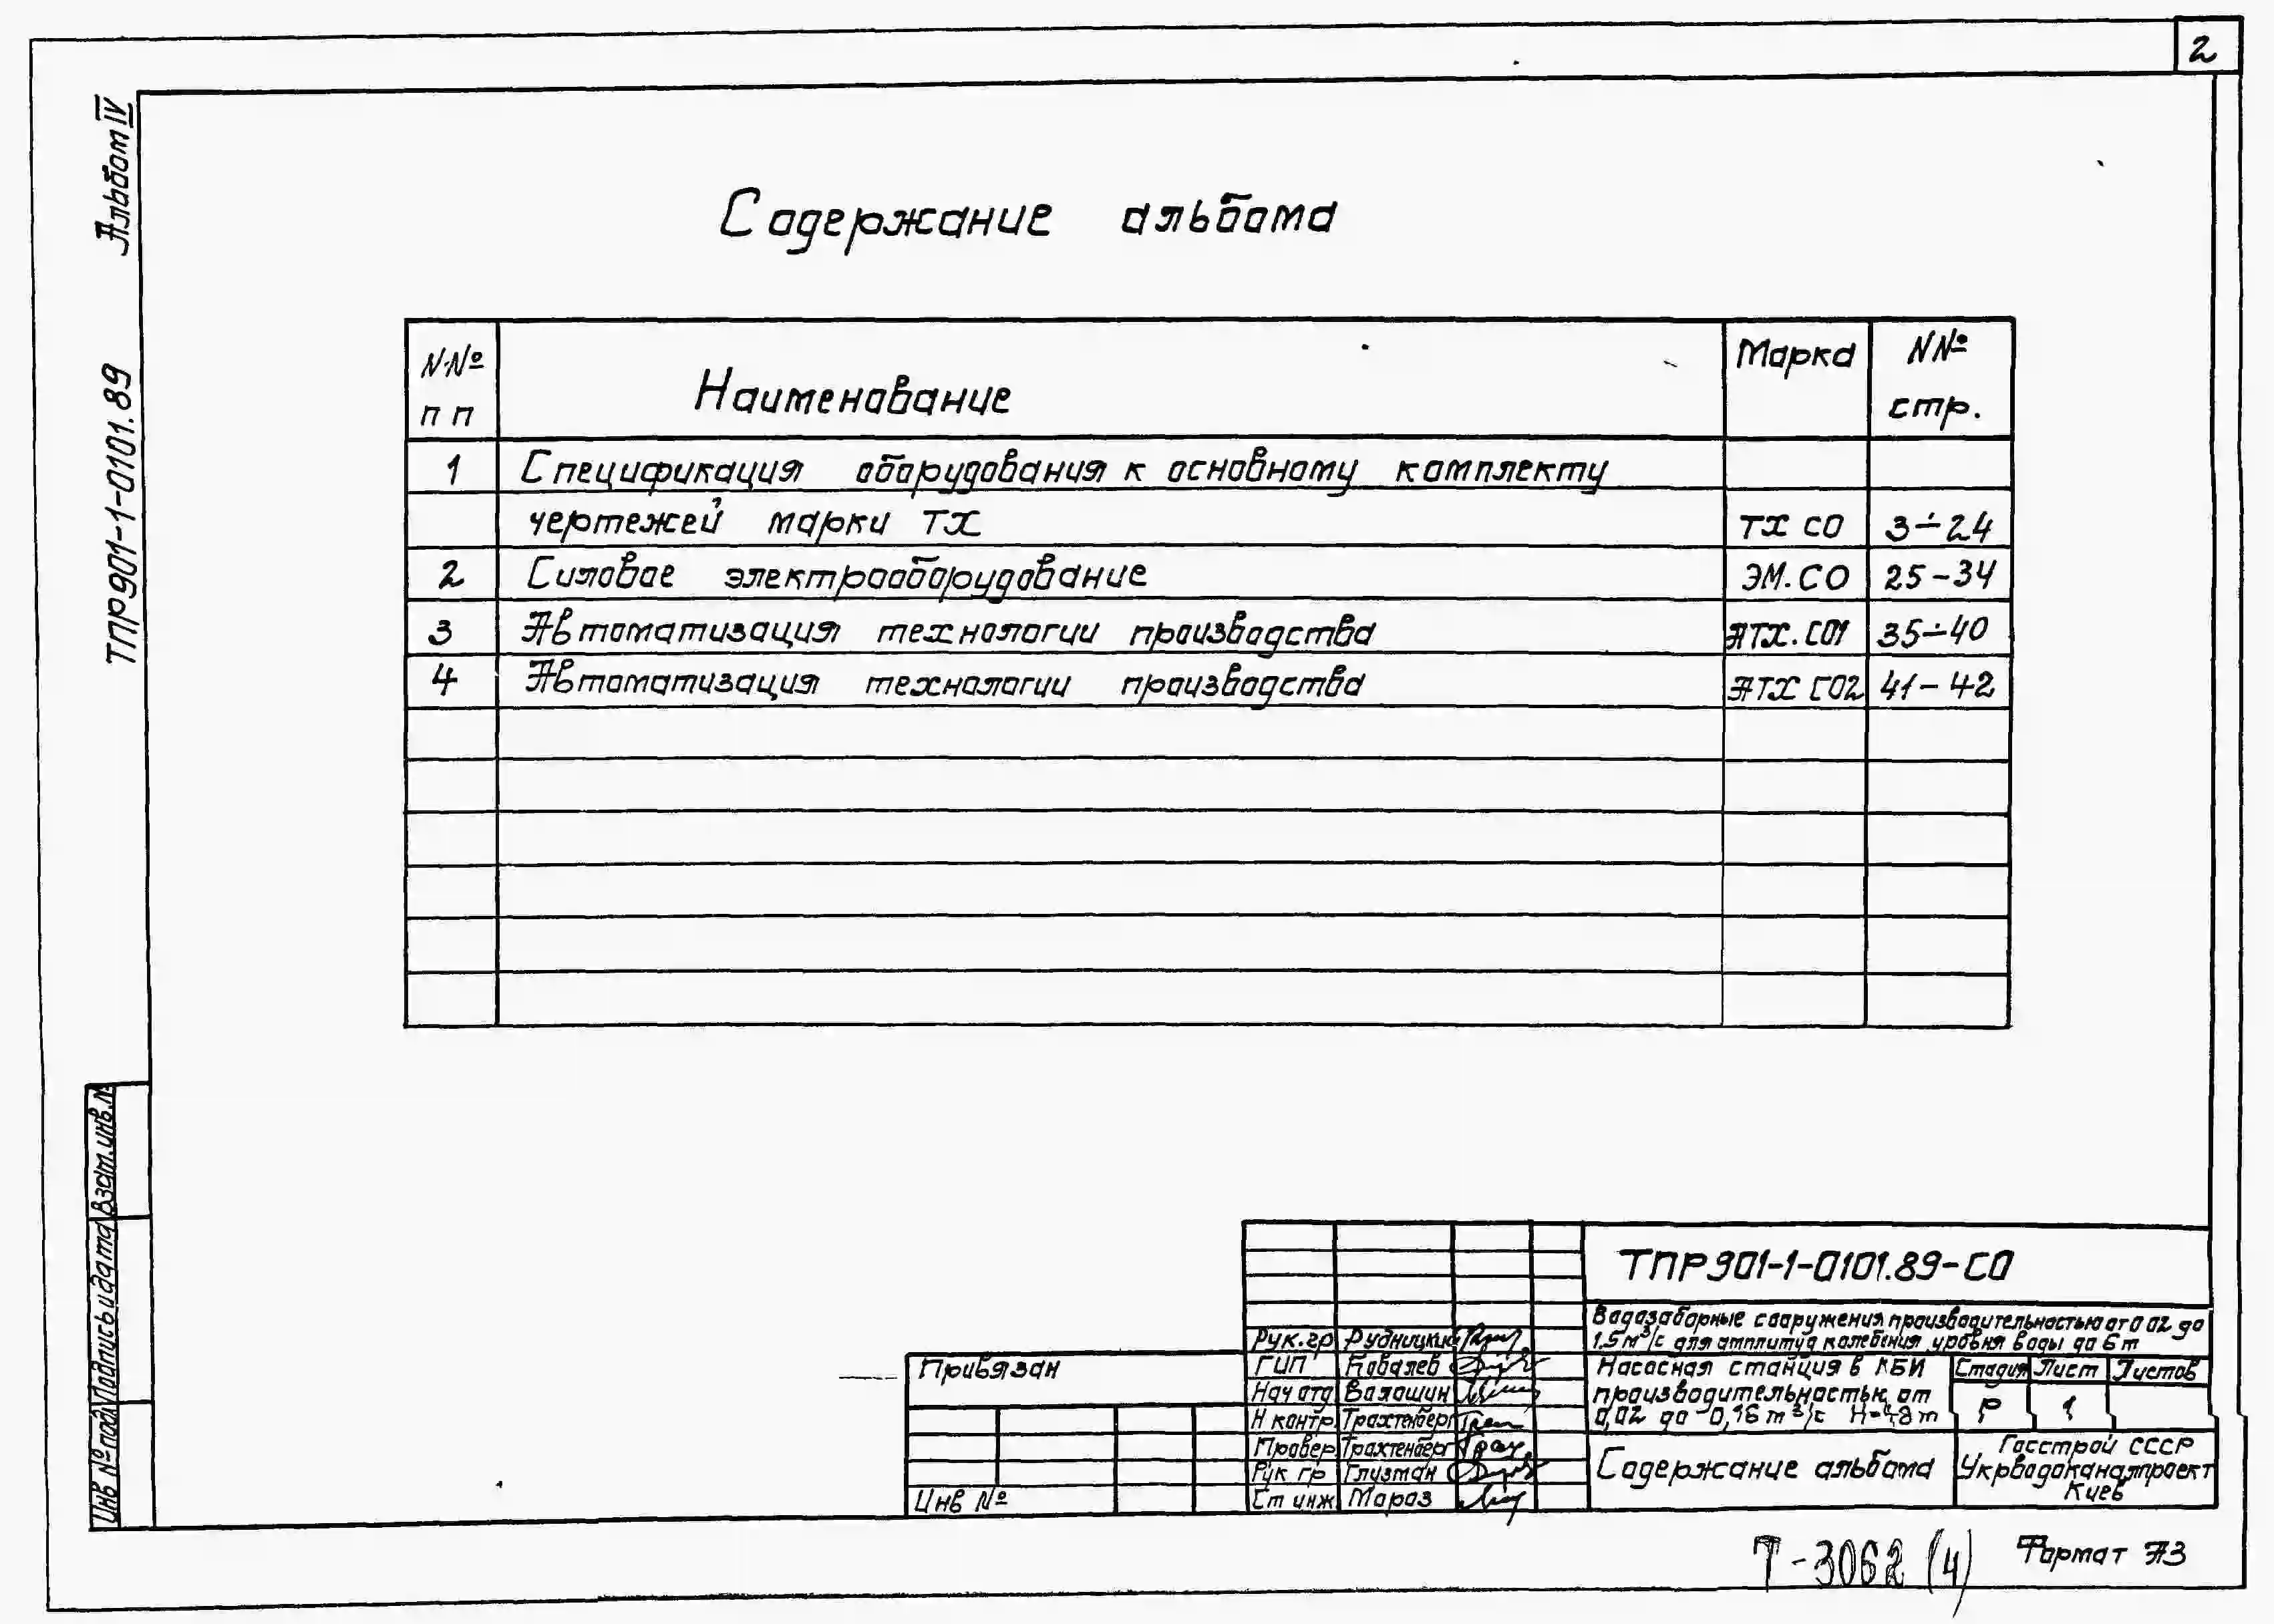 2
Альбом IV
ТПР901-1-0101.89
Содержание альбома
N№ пп Наименование Марка N№ стр.
1 Спецификация оборудования к основному комплекту
чертежей марки ТХ ТХ СО 3÷24
2 Силовое электрооборудование ЭМ.СО 25-34
3 Автоматизация технологии производства АТХ.СО1 35÷40
4 Автоматизация технологии производства АТХ СО2 41-42
Взам.инв.№
Подпись и дата
Инв № подл
ТПР901-1-0101.89-СО
Водозаборные сооружения производительностью от 0 02 до
1.5 м³/с для амплитуд колебания уровня воды до 6 м
Насосная станция в
производительностью от
0,02 до
Стадия Лист Листов
Р 1
Содержание альбома
Госстрой СССР
Укрводоканалпроект
Киев
Привязан
Инв №
Рук.гр Рудницкий
ГИП Ковалев
Нач отд Валашин
Н контр. Трахтенберг
Провер. Трахтенберг
Рук гр Глизман
Ст инж Мороз
Т-3062 (4)
Формат А3